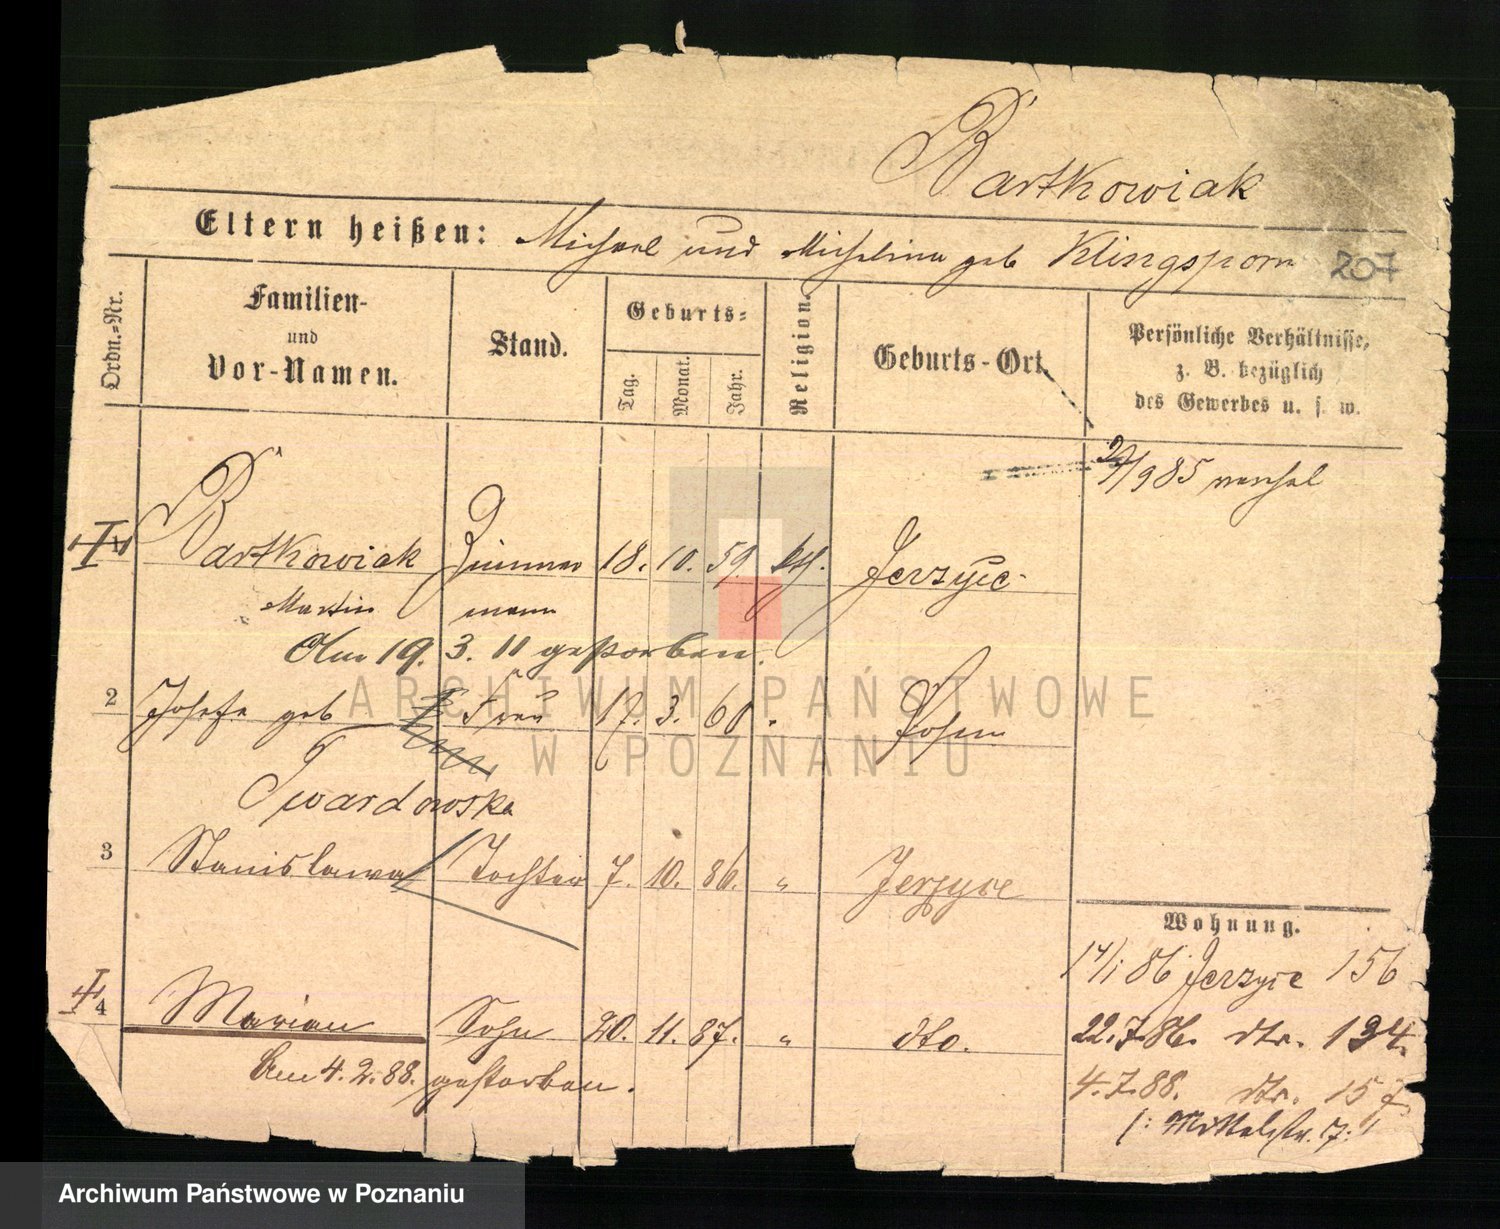 Bartkowiak
Eltern heißen: Michael und Michalina geb Klingsporn 207
Ordn.-Nr.
Familien-
und
Vor-Namen.
Stand.
Geburts-
Tag.
Monat.
Jahr.
Religion.
Geburts-Ort.
Persönliche Verhältnisse,
z. B. bezüglich
des Gewerbes u. s. w.
/9 85
Bartkowiak Zimmer 18. 10. 59. kth. Jerzyce
Martin mann
Am 19. 3. 11 gestorben.
2 Josefa geb Frau 17. 3. 60 Posen
Twardowska
3 Stanislawa Tochter 7. 10. 86. " Jerzyce
Wohnung.
14/1 86 Jerzyce 156
4 Marian Sohn 20. 11. 87. " dto.
22.7.86. dto. 134.
Am 4. 2. 88. gestorben.
4.7.88. dto. 157
/: Mittelstr. 7 :/
ARCHIWUM PAŃSTWOWE
W POZNANIU
Archiwum Państwowe w Poznaniu